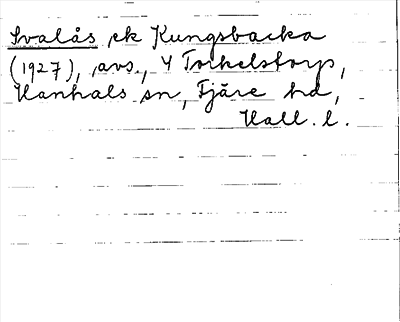 Svalås ek Kungsbacka
(1927), avs., 4 Torkelstorp,
Hanhals sn, Fjäre hd,
Hall. l.